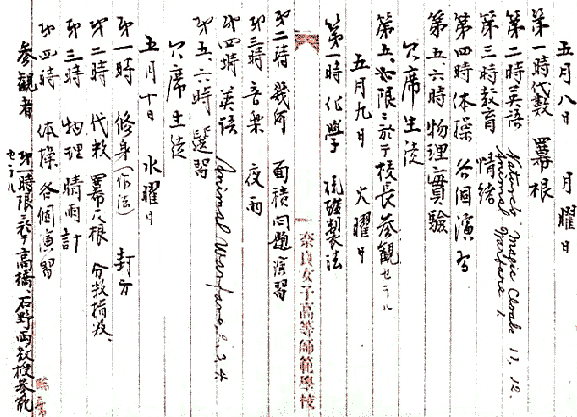 五月八日 月曜日
第一時 代数 冪根
第二時 英語 Nature's Magic Cloak 11, 12.
Animal Warfare 1
第三時 教育 情緒
第四時 体操 各個演習
第五六時 物理實驗
欠席生徒
第五、六限ニ於テ校長参観セラル
五月九日 火曜日
第一時 化学 硫酸製法
奈良女子高等師範學校
第二時 幾何 面積問題演習
第三時 音楽 夜雨
第四時 英語 Animal Warfare 2, 3, 4
第五、六時 選習
欠席生徒
五月十日 水曜日
第一時 修身(作法)
第二時 代数 冪及根 分数指数
第三時 物理 晴雨計
第四時 体操 各個演習
参観者 第一時限ニ於テ高橋 石野両教授参観
セラル